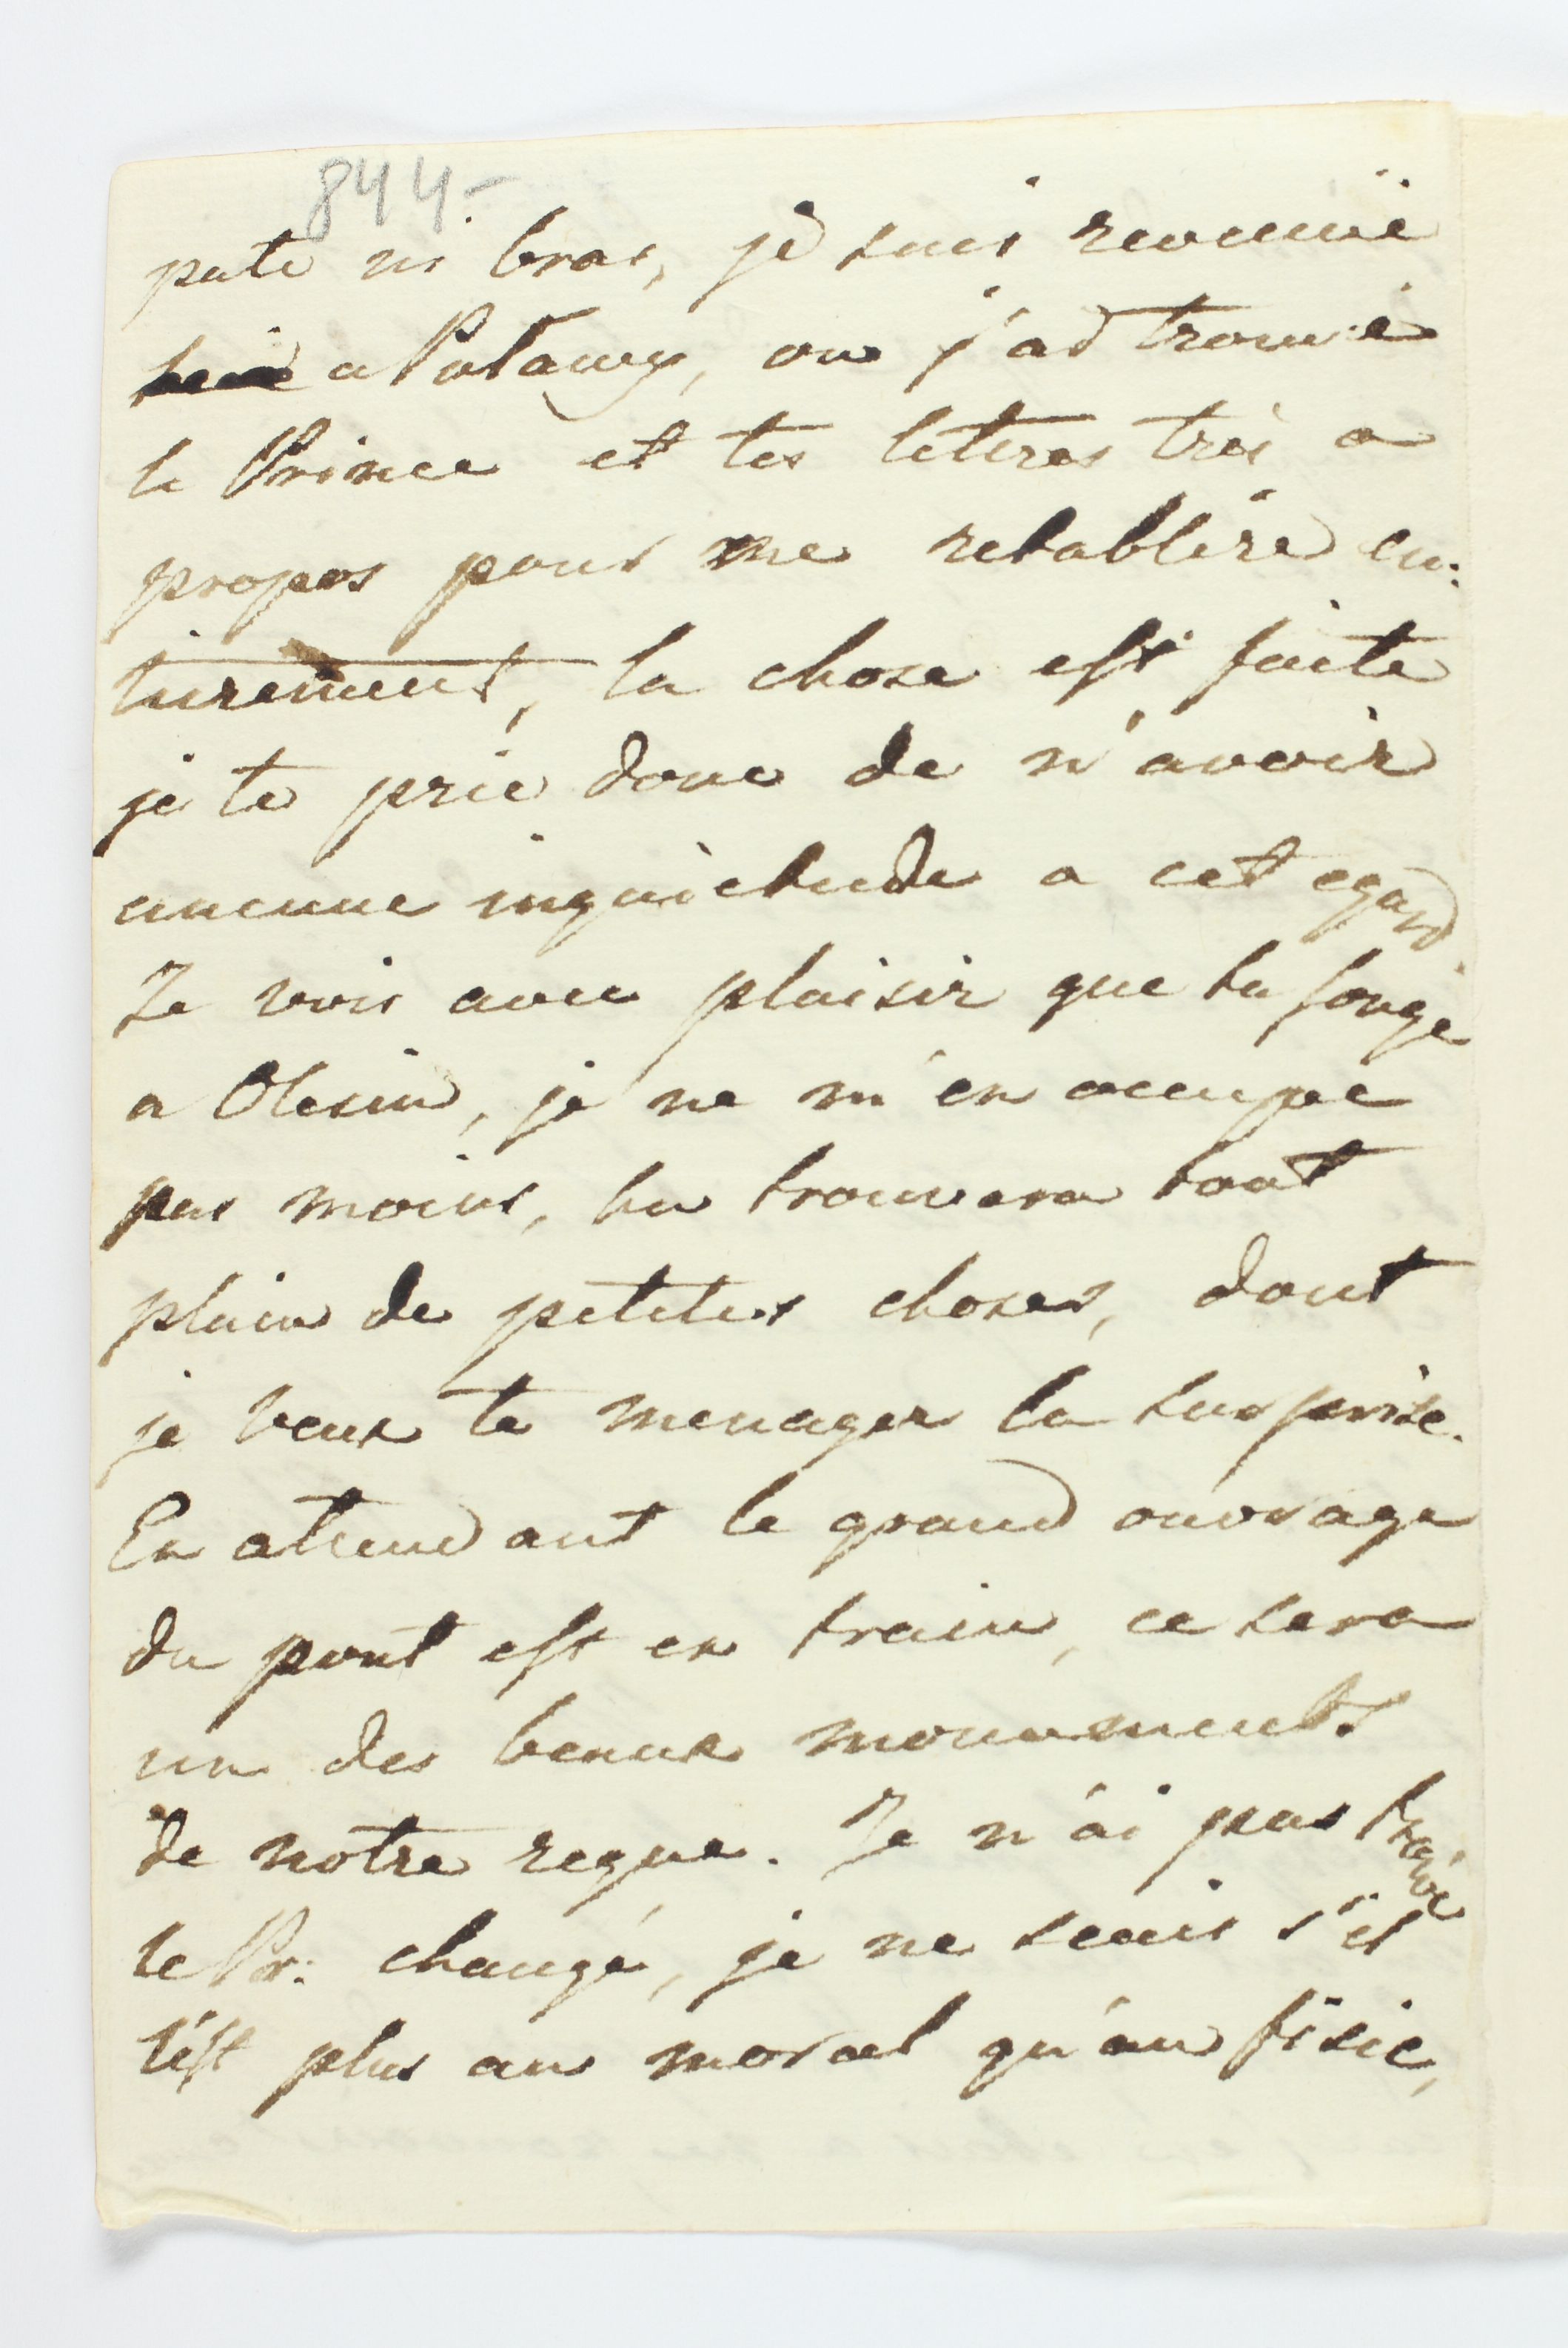 844-
pate ni bras, je suis revenuë
a Pulawy, ou j'ai trouvé
le Prince et tes lettres très a
propos pour me retablire en:
tierement, la chose est faite
je te prie donc de n'avoir
aucune inquietude a cet egard
Je vois avec plaisir que tu songe
a Olesin, je ne m'en occupe
pas moins, tu trouvera tout
plain de petites choses, dont
je veux te menager la surprise.
En attendant le grand ouvrage
du pont est en train, ce sera
un des beaux monuments
de notre regne. Je n'ai pas trouvé
le Pr: changé, je ne scais s'il
l'est plus au moral qu'au fisic,